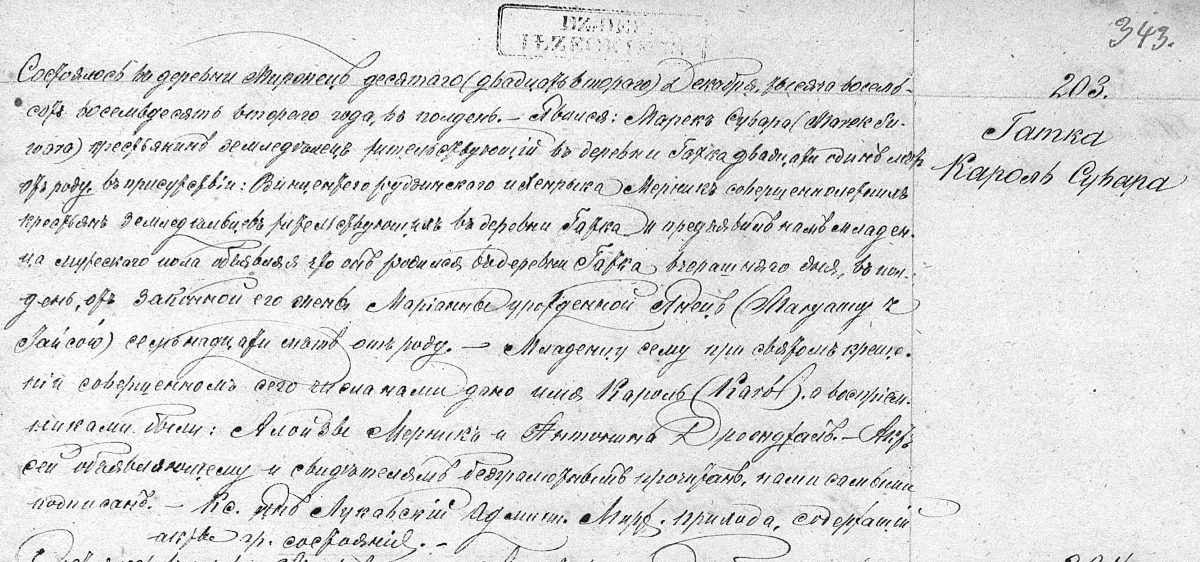 343.
203.
Гатка
Кароль Сувара
Состоялось въ деревни Миронецъ десятаго (двадцать втораго) Декабря, тысяча восемь-
сотъ восемьдесятъ втораго года, въ полдень. – Явился: Марекъ Сувара (Marek Su-
wara) крестьянинъ земледѣлецъ жительствующій въ деревни Гатка двадцати одинъ лѣтъ
отъ роду, въ присутствіи: Винцентего Рудзинского и Генрыка Мерникъ совершеннолѣтнихъ
крестьянъ земледѣльцевъ жительствующихъ въ деревни Гатка и предъявилъ намъ младен-
ца мужескаго пола объявляя что онъ родился въ деревни Гатка вчерашняго дня, въ пол-
день, отъ законной его жены Маріанны урожденной
семьнадцати лѣтъ отъ роду. – Младенцу сему при святомъ креще-
ніи совершенномъ сего числа нами дано имя Кароль (Karol), а воспріем-
никами были: Алойзы Мерникъ и Антонина – Актъ
сей объявляющему и свидѣтелямъ безграмотнымъ прочитанъ, нами самыми
подписанъ. – Кс. Янъ Лукавскій Админ. прихода, содержащій
акты гр. состоянія. –